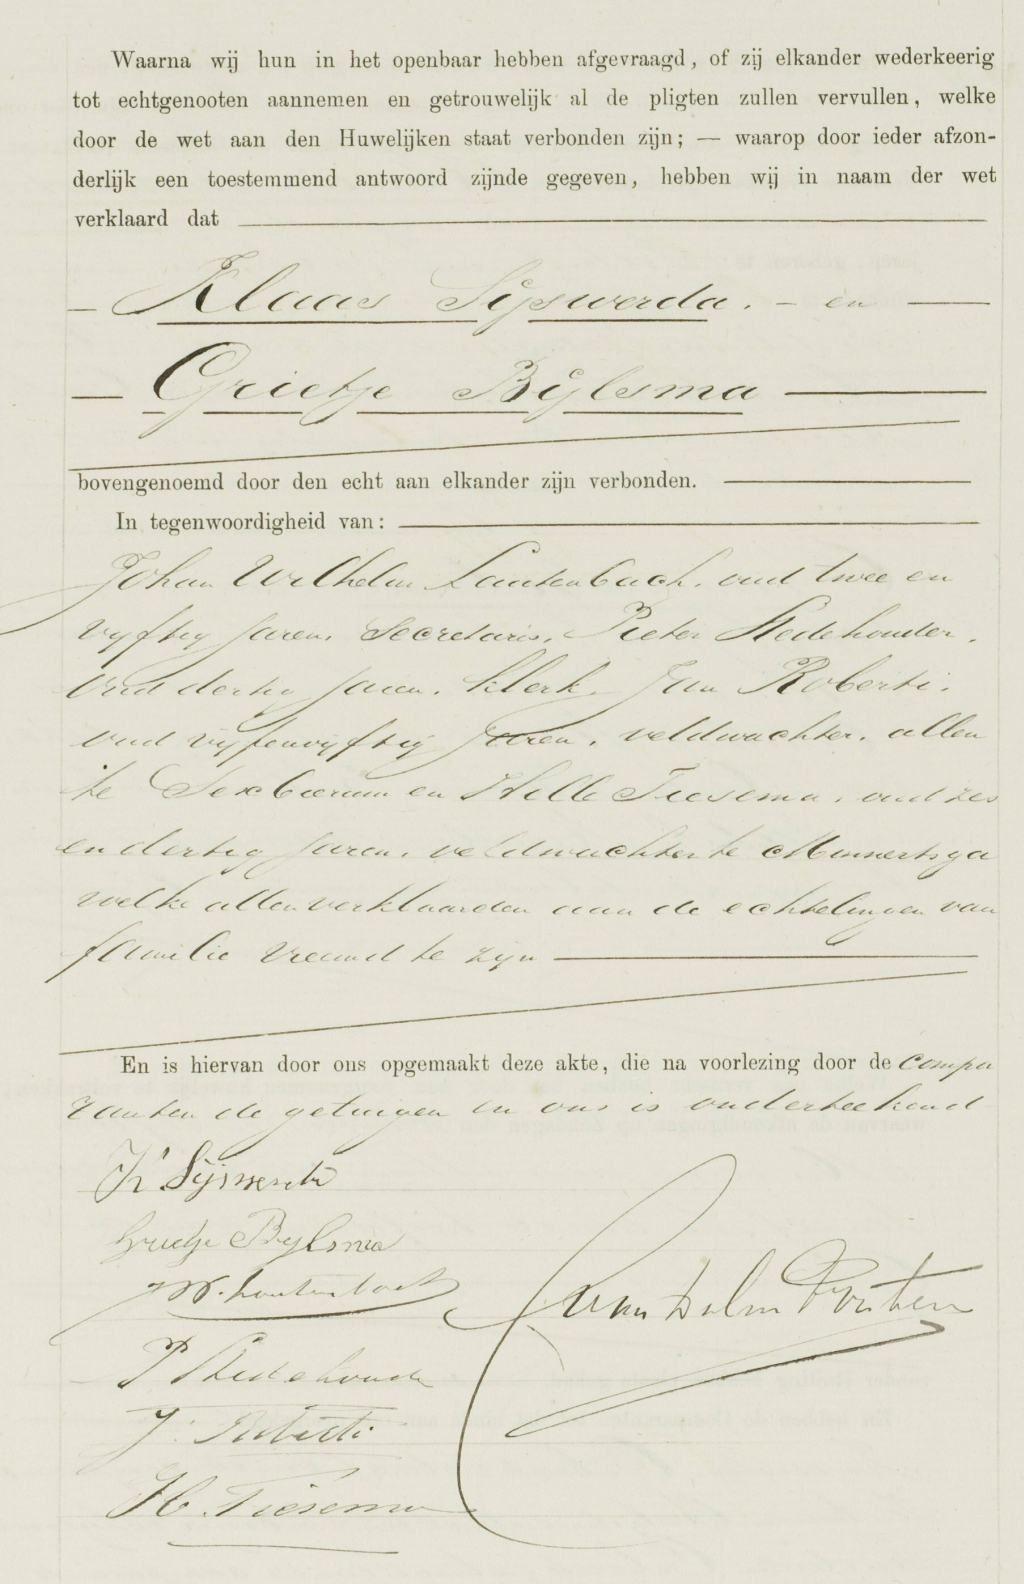 Waarna wij hun in het openbaar hebben afgevraagd, of zij elkander wederkeerig
tot echtgenooten aannemen en getrouwelijk al de pligten zullen vervullen, welke
door de wet aan den Huwelijken staat verbonden zijn; — waarop door ieder afzon-
derlijk een toestemmend antwoord zijnde gegeven, hebben wij in naam der wet
verklaard dat
Klaas Sijswerda. – en
Grietje Bijlsma
bovengenoemd door den echt aan elkander zijn verbonden.
In tegenwoordigheid van:
Johan Wilhelm Lautenbach, oud twee en
vyftig jaren, Secretaris, Pieter Stedehouder,
oud dertig jaren, klerk, Jan Roberti,
oud vyfenvyftig jaren, veldwachter, allen
te Sexbierum en Hille Tiesema, oud zes
en dertig jaren, veldwachter te Minnertsga
welke allen verklaarden aan de echtelingen van
familie vreemd te zyn
En is hiervan door ons opgemaakt deze akte, die na voorlezing door de compa
ranten de getuigen en ons is onderteekend
K Sijswerda
Grietje Bylsma
JW. Lautenbach
P Stedehouder
J. Roberti
H. Tiesema